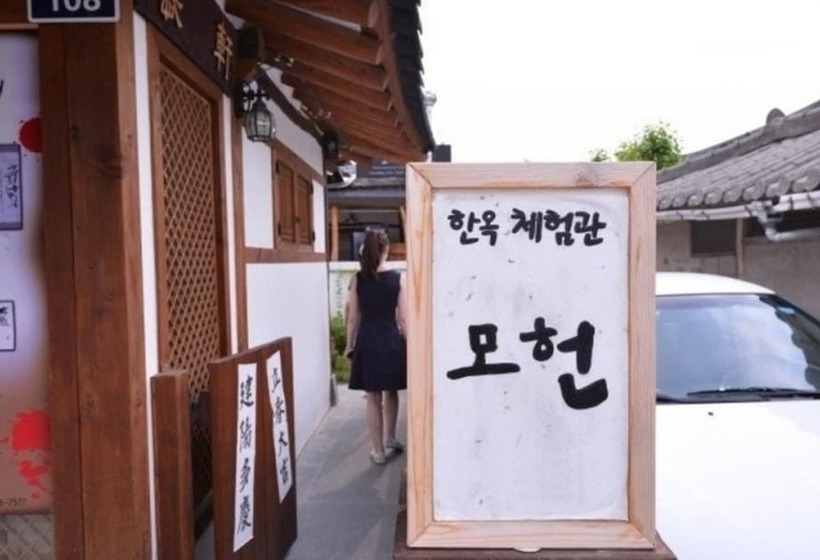 108
軒
한옥 체험관
모헌
建陽多慶
立春大吉
-7577